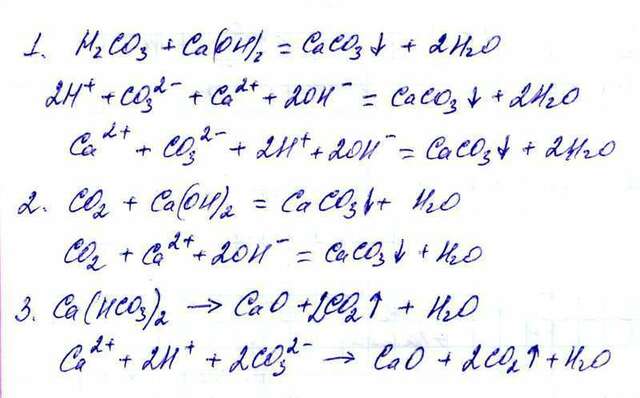 1. H₂CO₃ + Ca(OH)₂ = CaCO₃↓ + 2H₂O
2H⁺ + CO₃²⁻ + Ca²⁺ + 2OH⁻ = CaCO₃↓ + 2H₂O
Ca²⁺ + CO₃²⁻ + 2H⁺ + 2OH⁻ = CaCO₃↓ + 2H₂O
2. CO₂ + Ca(OH)₂ = CaCO₃↓ + H₂O
CO₂ + Ca²⁺ + 2OH⁻ = CaCO₃↓ + H₂O
3. Ca(HCO₃)₂ → CaO + 2CO₂↑ + H₂O
Ca²⁺ + 2H⁺ + 2CO₃²⁻ → CaO + 2CO₂↑ + H₂O